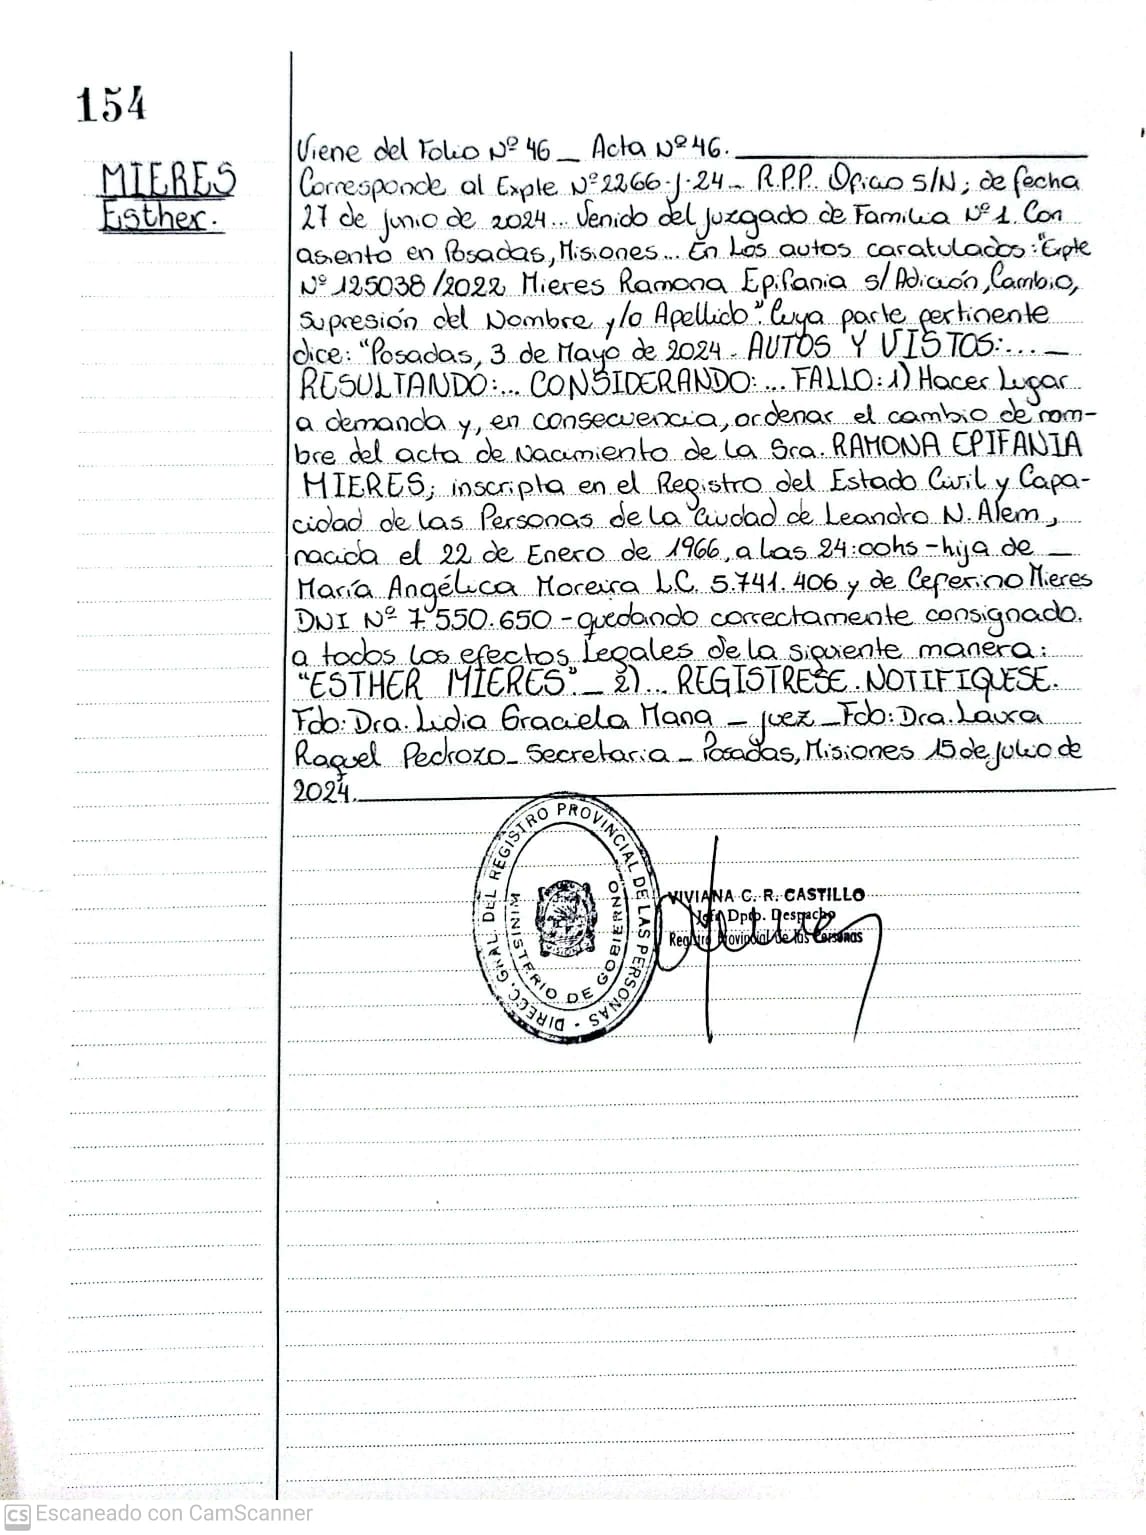 154
MIERES
Esther.
Viene del Folio Nº 46 _ Acta Nº 46.
Corresponde al Expte Nº 2266-J-24 _ R.P.P. Oficio S/N; de fecha
27 de junio de 2024... Venido del juzgado de Familia Nº 1. Con
asiento en Posadas, Misiones... En Los autos caratulados: "Expte
Nº 125038/2022 Mieres Ramona Epifania s/Adición, Cambio,
Supresión del Nombre y/o Apellido". Cuya parte pertinente
dice: "Posadas, 3 de Mayo de 2024. AUTOS Y VISTOS:... _
RESULTANDO:... CONSIDERANDO: ... FALLO: 1) Hacer Lugar
a demanda y, en consecuencia, ordenar el cambio de nom-
bre del acta de Nacimiento de la Sra. RAMONA EPIFANIA
MIERES; inscripta en el Registro del Estado Civil y Capa-
cidad de las Personas de la Ciudad de Leandro N. Alem,
nacida el 22 de Enero de 1966, a las 24:00hs - hija de _
María Angélica Moreira L.C. 5.741.406 y de Ceferino Mieres
DNI Nº 7.550.650 - quedando correctamente consignado.
a todos los efectos Legales de la siguiente manera:
"ESTHER MIERES" _ 2)... REGISTRESE. NOTIFIQUESE.
Fdo: Dra. Lidia Graciela Mana _ juez _ Fdo: Dra. Laura
Raquel Pedrozo _ Secretaria _ Posadas, Misiones 15 de julio de
2024.
DIRECC. GRAL DEL REGISTRO PROVINCIAL DE LAS PERSONAS -
MINISTERIO DE GOBIERNO
VIVIANA C. R. CASTILLO
Jefe Dpto. Despacho
Registro Provincial de las Personas
CS Escaneado con CamScanner